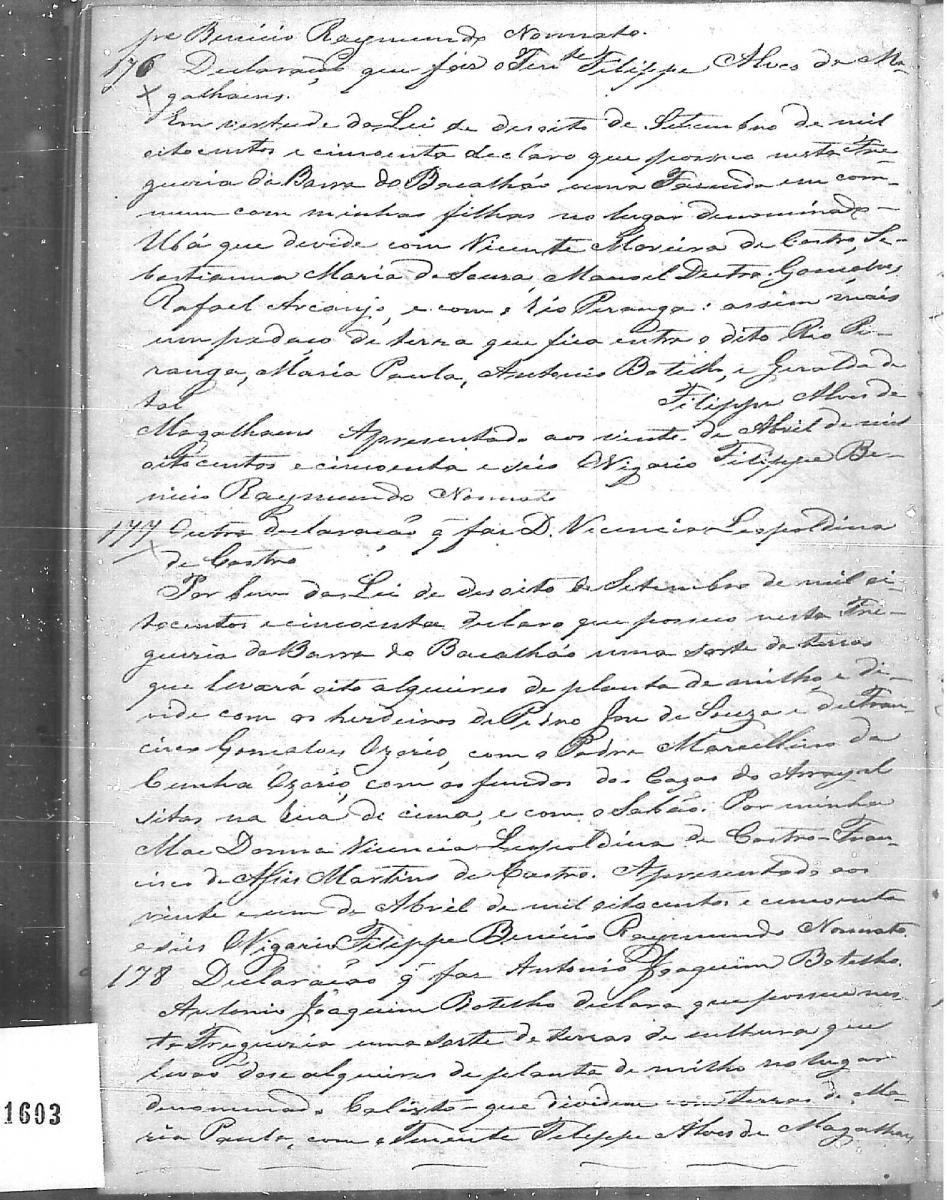 pe Benicio Raymundo Nonnato.
176 Declaração que faz o Ten.te Filippe Alves de Ma-
galhaens.
Em vertude da Lei de desoito de Setembro de mil
oitocentos e cincoenta declaro que possuo nesta Fre-
guezia da Barra do Bacalháo uma Fazenda em com-
mum com minhas filhas no lugar denominado -
Ubá que devide com Vicente Moreira de Castro, Se-
bastianna Maria de Souza, Manoel Dutra Gonçalves,
Rafael Arcanjo, e com o rio Piranga: assim mais
um pedaço de terra que fica entre o dito Rio Pi-
ranga, Maria Paula, Antonio Botelho, e Geralda de
tal Filippe Alves de
Magalhaens Apresentado aos vinte de Abril de mil
oitocentos e cincoenta e seis O Vigario Filippe Be-
nicio Raymundo Nonnato
177 Outra declaração q faz D. Vicencia Leopoldina
de Castro
Por bem da Lei de desoito de Setembro de mil oi-
tocentos e cincoenta declaro que possuo nesta Fre-
guezia da Barra do Bacalháo uma sorte de terras
que levará oito alqueires de planta de milho, e di-
vide com os herdeiros de Pedro Jose de Souza e de Fran-
cisco Gonçalves Ozorio, com o Padre Marcellino da
Cunha Ozorio, com os fundos das Cazas do Arrayal
sitas na Rua de cima, e com o Sabão. Por minha
Mae Donna Vicencia Leopoldina de Castro - Fran-
cisco de Assis Martins de Castro. Apresentado aos
vinte e um de Abril de mil oitocentos e cincoenta
e seis O Vigario Filippe Benicio Raymundo Nonnato.
178 Declaração q faz Antonio Joaquim Botelho.
Antonio Joaquim Botelho declara que possue nes-
ta Freguezia uma sorte de terras de cultura que
levão dose alqueires de planta de milho no lugar
denominado Calixto - que dividem com terras de Ma-
ria Paula, com o Tenente Filippe Alves de Magalhaes,
1693